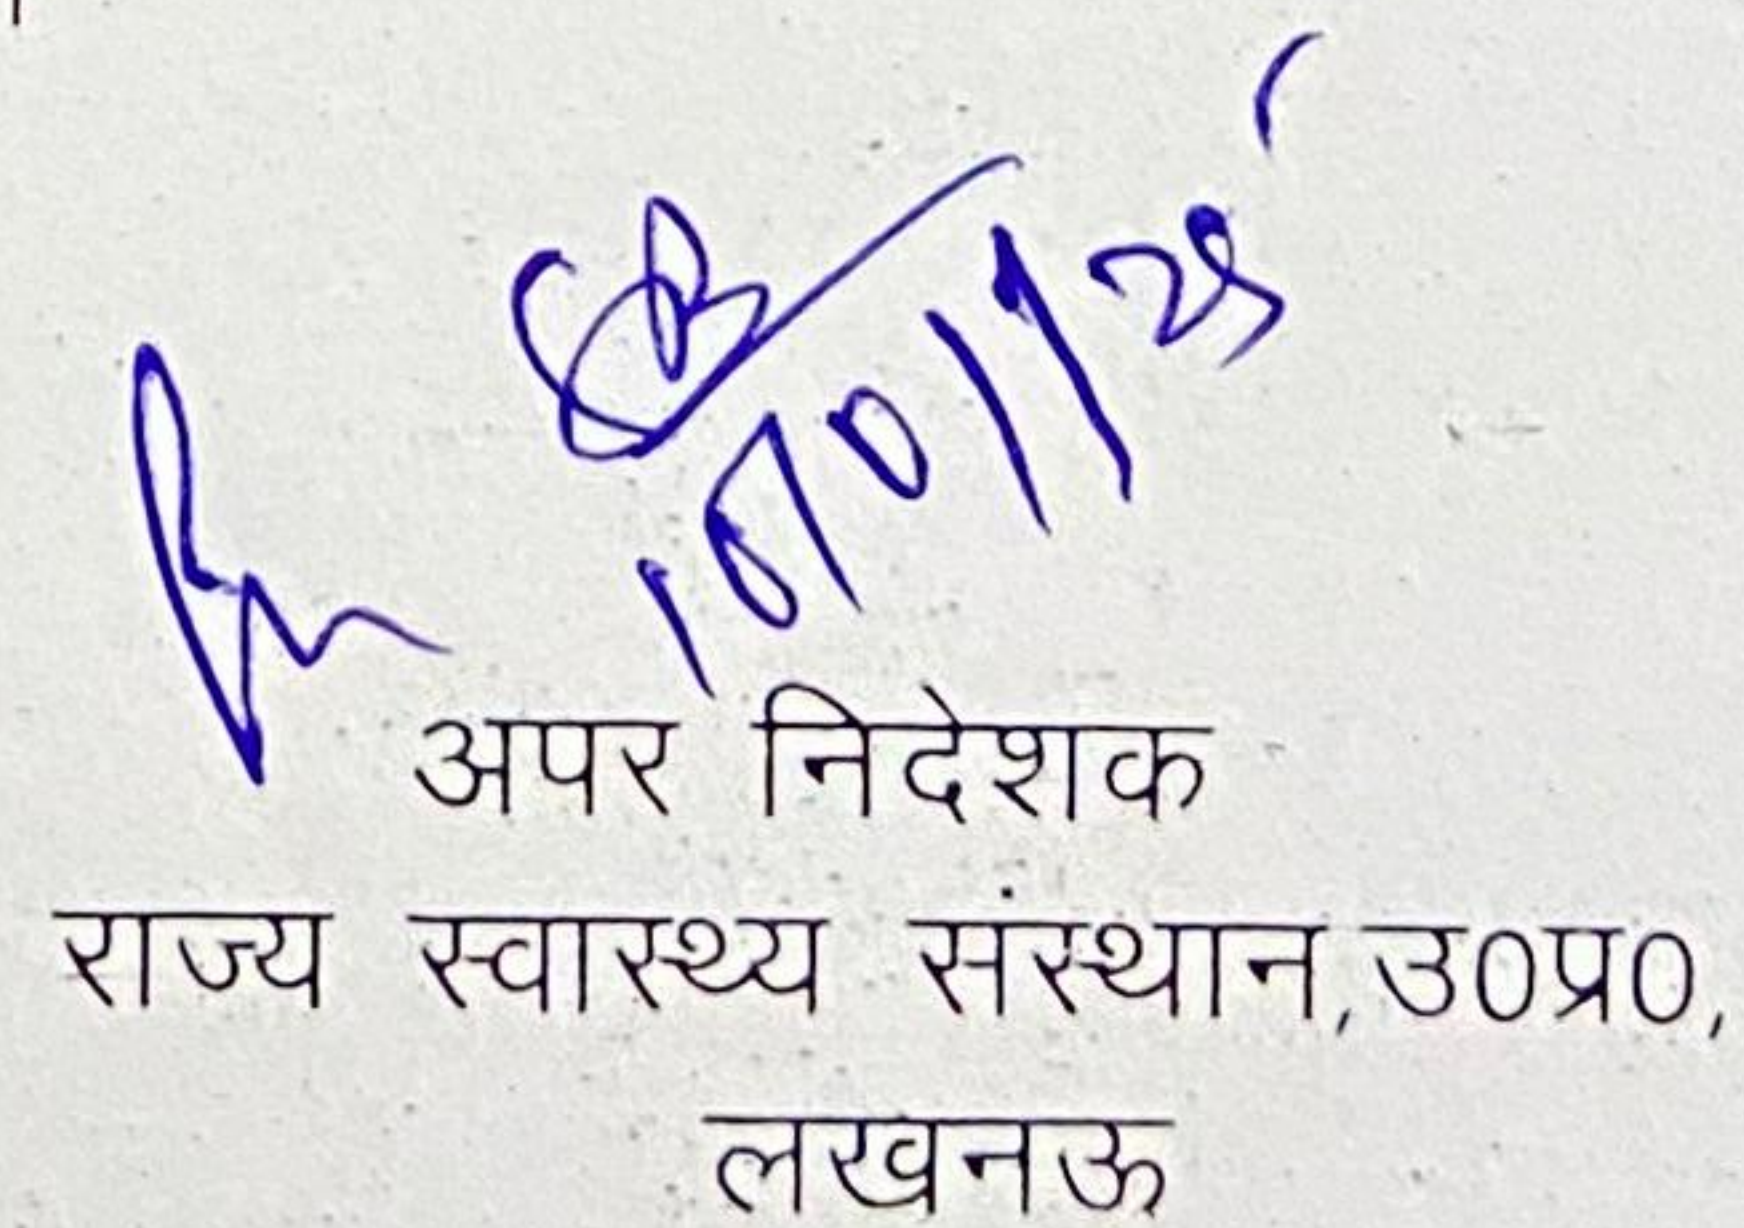 10/01/25
अपर निदेशक
राज्य स्वास्थ्य संस्थान,उ0प्र0,
लखनऊ